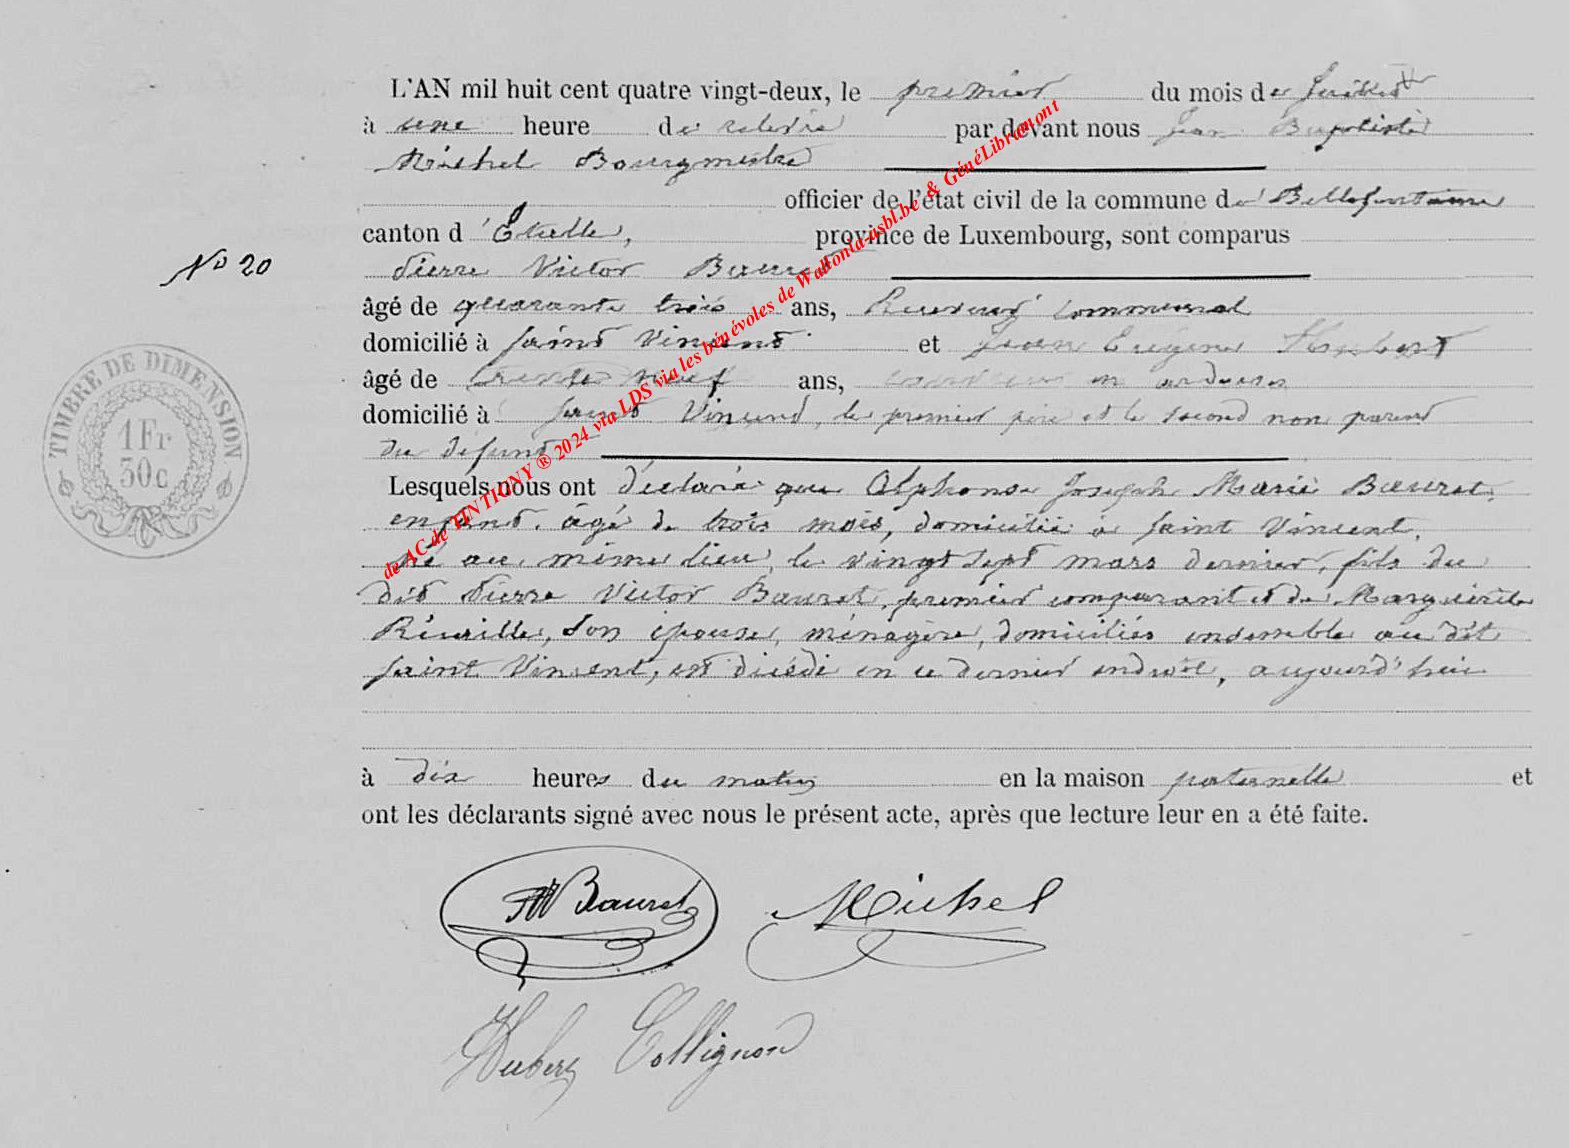 L'AN mil huit cent quatre vingt-deux, le premier du mois de Juillet
à une heure de relevée par devant nous Jean Baptiste
Michel Bourgmestre
officier de l'état civil de la commune de Bellefontaine
canton d'Etalle, province de Luxembourg, sont comparus
No 20
Pierre Victor Bauret
âgé de quarante trois ans, Receveur communal
domicilié à Saint Vincent et Jean Eugène Hubert
âgé de trente neuf ans, en ardoises
domicilié à Saint Vincent, le premier père et le second non parent
du défunt
Lesquels nous ont déclaré que Alphonse Joseph Marie Bauret,
enfant, âgé de trois mois, domicilié à Saint Vincent,
né au même lieu, le vingt sept mars dernier, fils du
dit Pierre Victor Bauret, premier comparant et de Marguerite
son épouse, ménagère, domiciliés ensemble au dit
Saint Vincent, est décédé en ce dernier endroit, aujourd'hui
à dix heures du matin en la maison paternelle et
ont les déclarants signé avec nous le présent acte, après que lecture leur en a été faite.
Bauret Michel
Hubert Collignon
TIMBRE DE DIMENSION
1 Fr
30c
de AC de TINTIGNY ® 2024 via LDS via les bénévoles de Wallonia-asbl.be & GénéLibramont